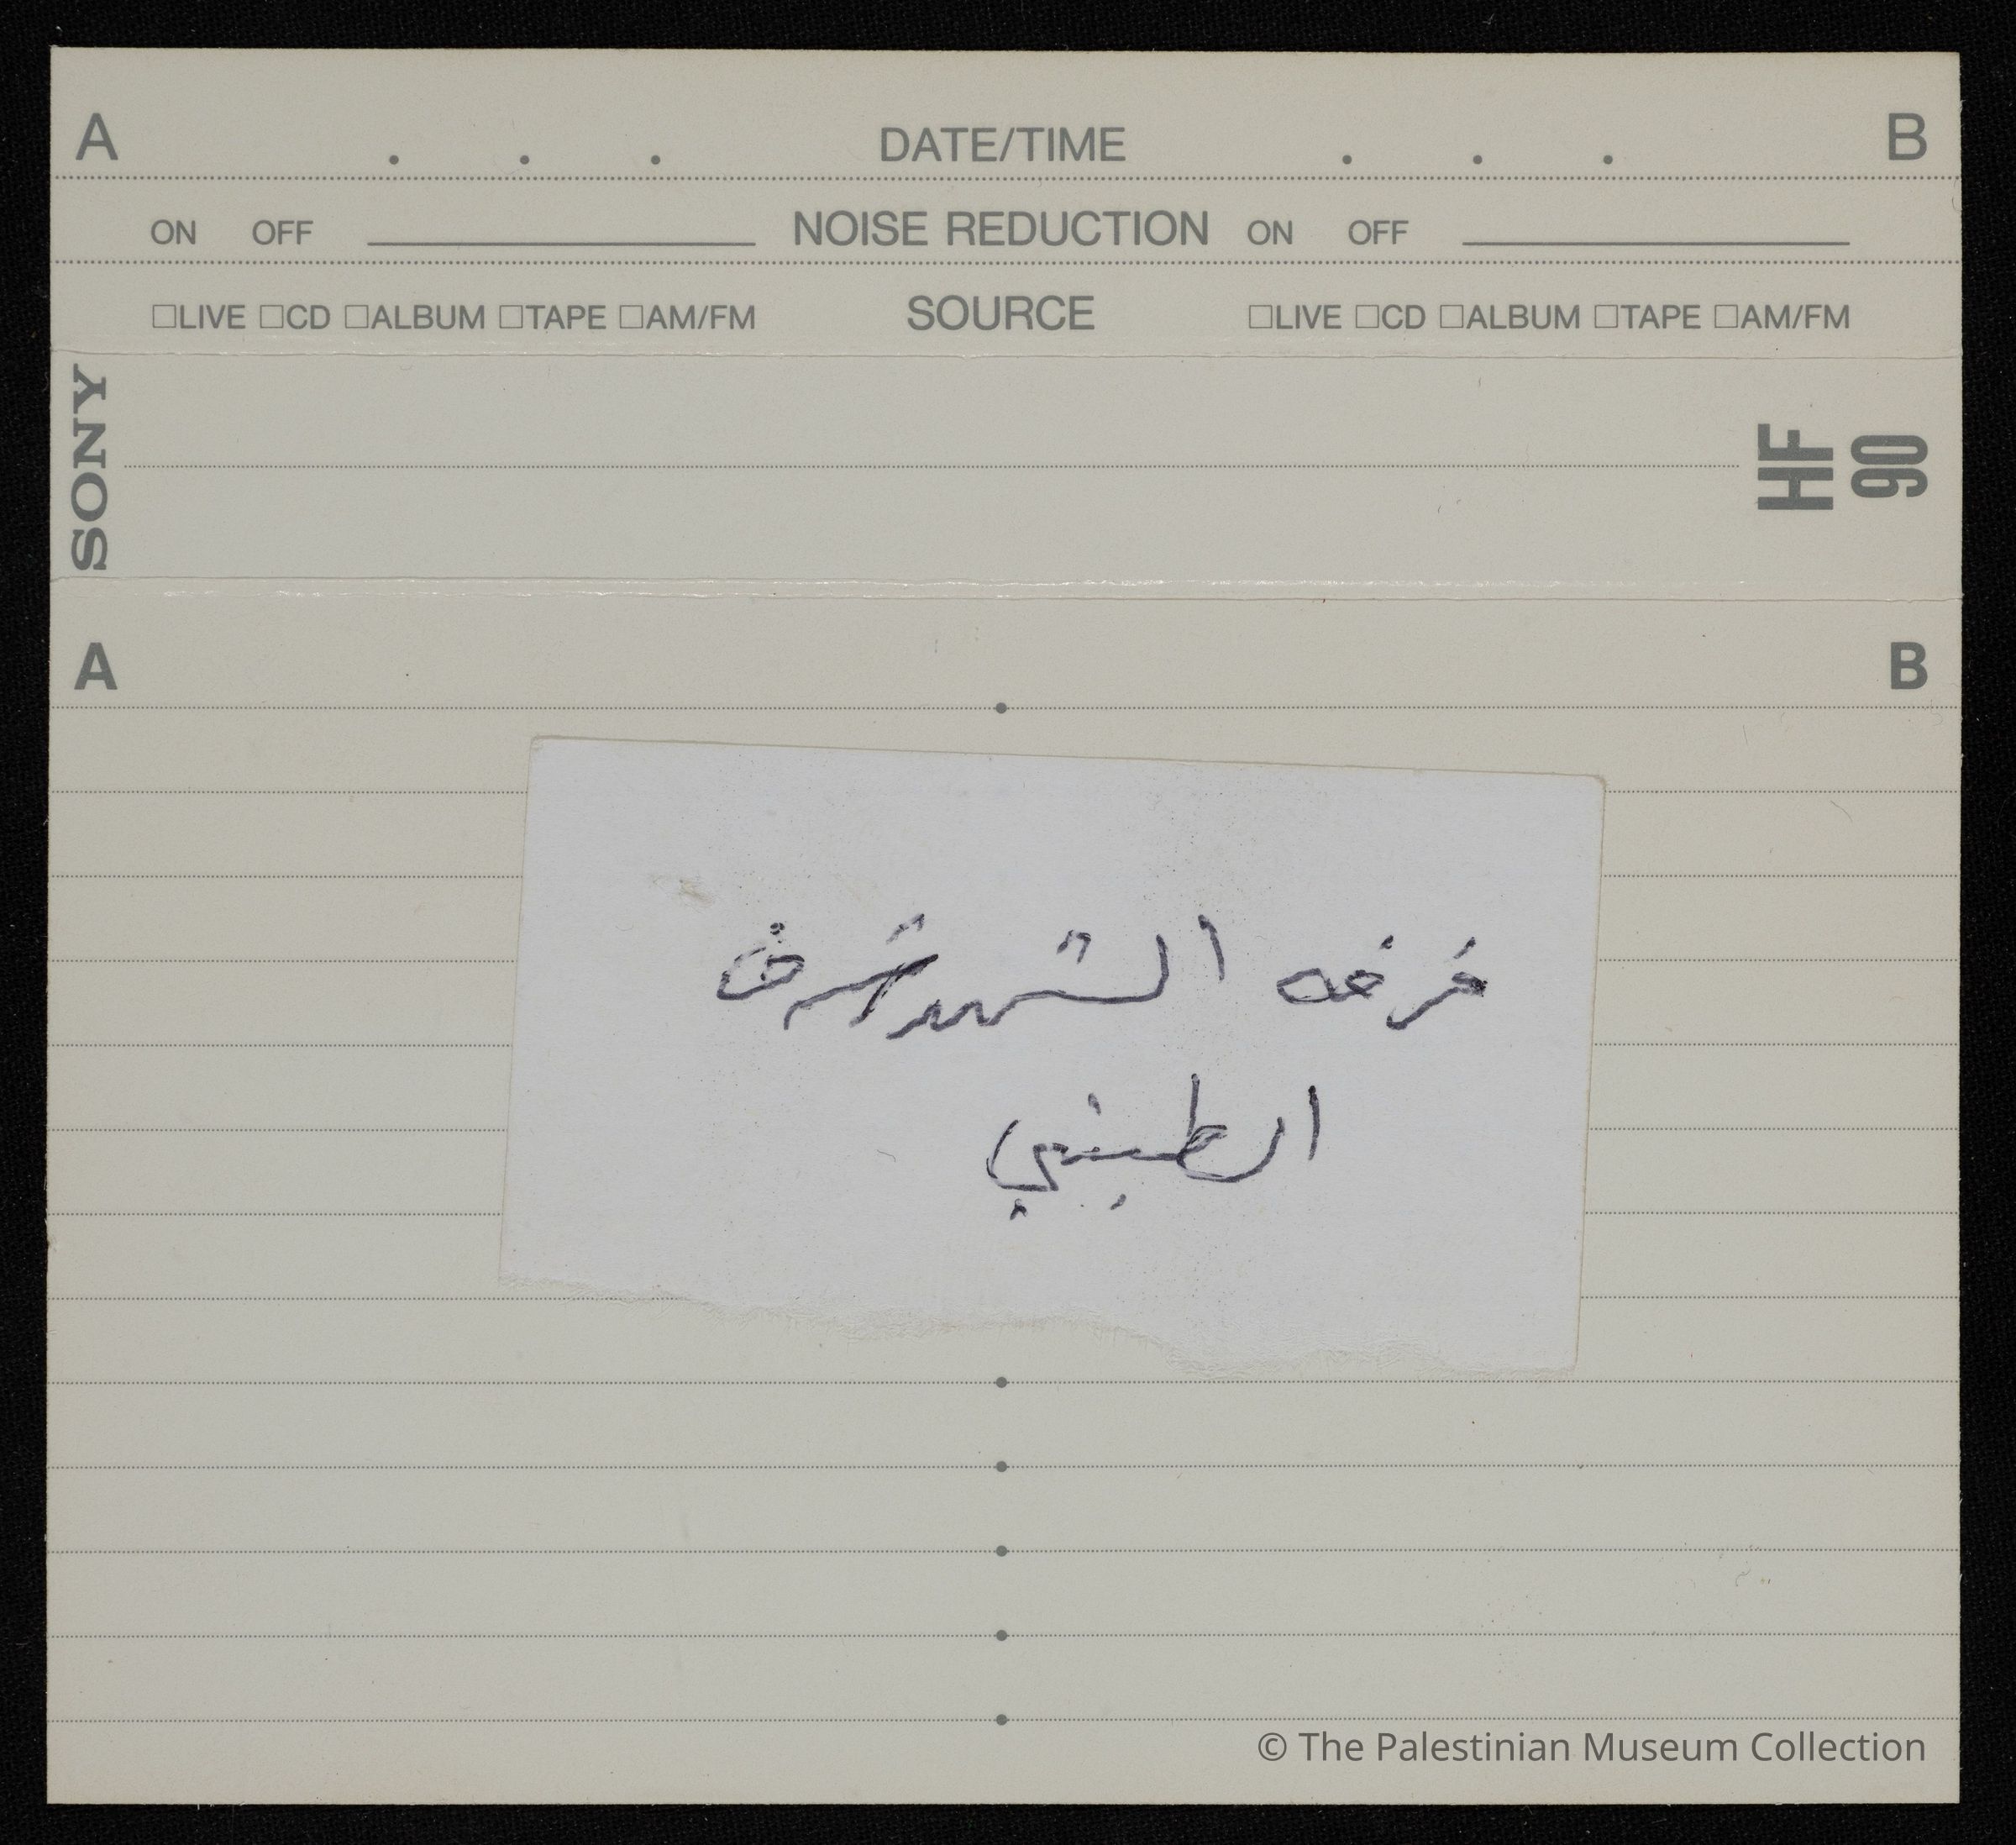 A DATE/TIME B
ON OFF NOISE REDUCTION ON OFF
□LIVE □CD □ALBUM □TAPE □AM/FM SOURCE □LIVE □CD □ALBUM □TAPE □AM/FM
SONY HF 90
A B
فرقه الشهيد شرف
الطيبي
© The Palestinian Museum Collection